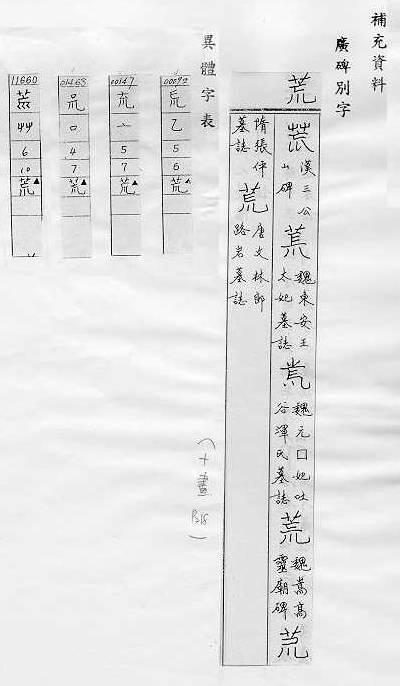 補充資料
廣碑別字
荒
漢三公山碑
魏東安王太妃墓誌
魏元口妃吐谷渾氏墓誌
荒
魏嵩高靈廟碑
隋張伏墓誌
荒
唐文林郎路岩墓誌
(十畫 P.218)
異體字表
00092
乙
5
6
荒▲
00147
亠
5
7
荒▲
01463
口
4
7
荒▲
11660
艸
6
10
荒▲